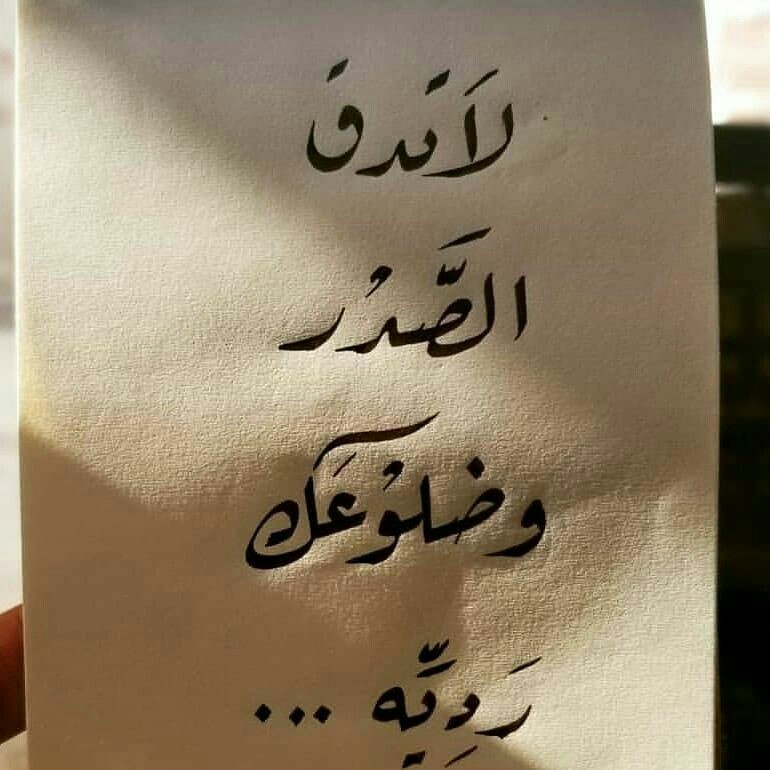 لَا تدق
الصَّدْر
وضلوْعَك
رَدِيِّه ...